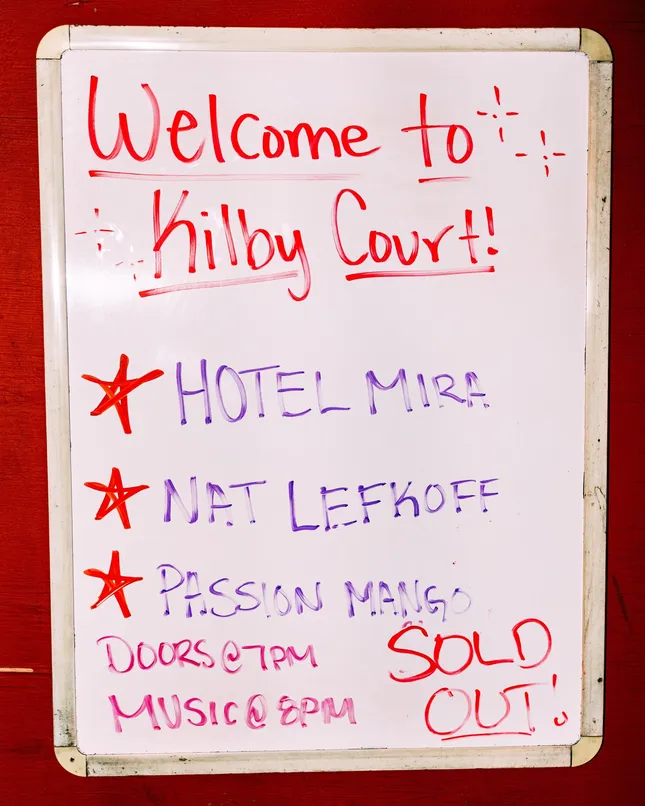 Welcome to
Kilby Court!
HOTEL MIRA
NAT LEFKOFF
PASSION MANGO
DOORS@7PM SOLD
MUSIC@8PM OUT!